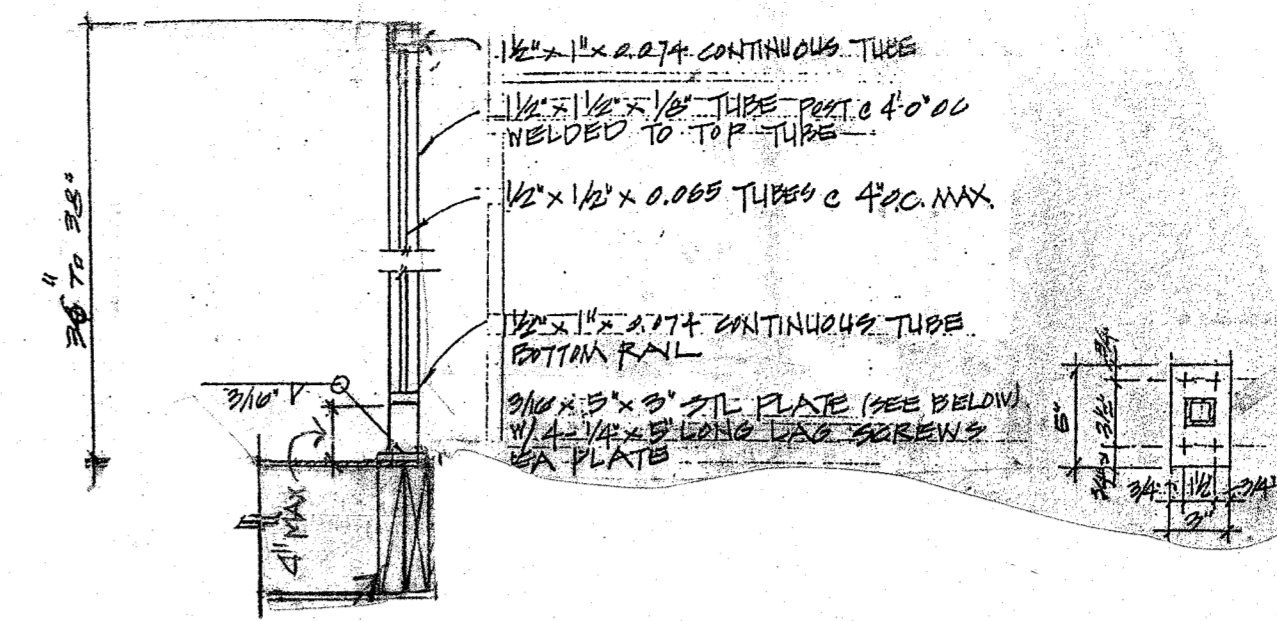 1½" x 1" x 0.074 CONTINUOUS TUBE
1½" x 1½" x 1/8" TUBE POST @ 4'-0" OC
WELDED TO TOP TUBE
½" x ½" x 0.065 TUBES @ 4" O.C. MAX.
36" TO 38"
1½" x 1" x 0.074 CONTINUOUS TUBE
BOTTOM RAIL
3/16" V
3/16 x 5" x 3" STL PLATE (SEE BELOW)
W/ 4-1/4" x 5" LONG LAG SCREWS
EA PLATE
4" MAX
5"
3/4
3½"
3/4"
3/4"
1½
3/4"
3"